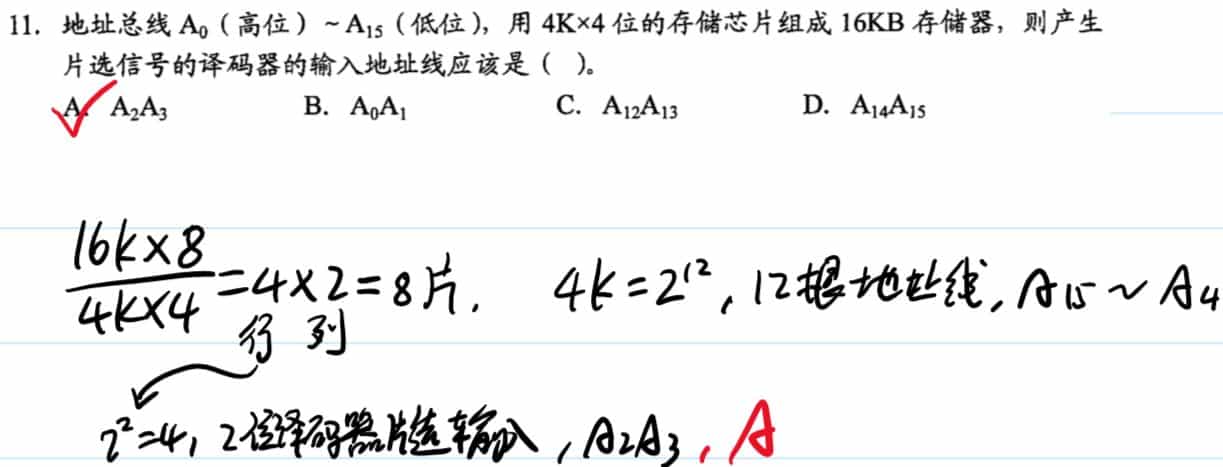 11. 地址总线 A₀（高位）~A₁₅（低位），用 4K×4 位的存储芯片组成 16KB 存储器，则产生
片选信号的译码器的输入地址线应该是（ ）。
A. A₂A₃ B. A₀A₁ C. A₁₂A₁₃ D. A₁₄A₁₅
16k×8/4k×4=4×2=8片. 4k=2¹²,12根地址线,A₁₅~A₄
行 列
2²=4,2位译码器片选输入,A₂A₃,A